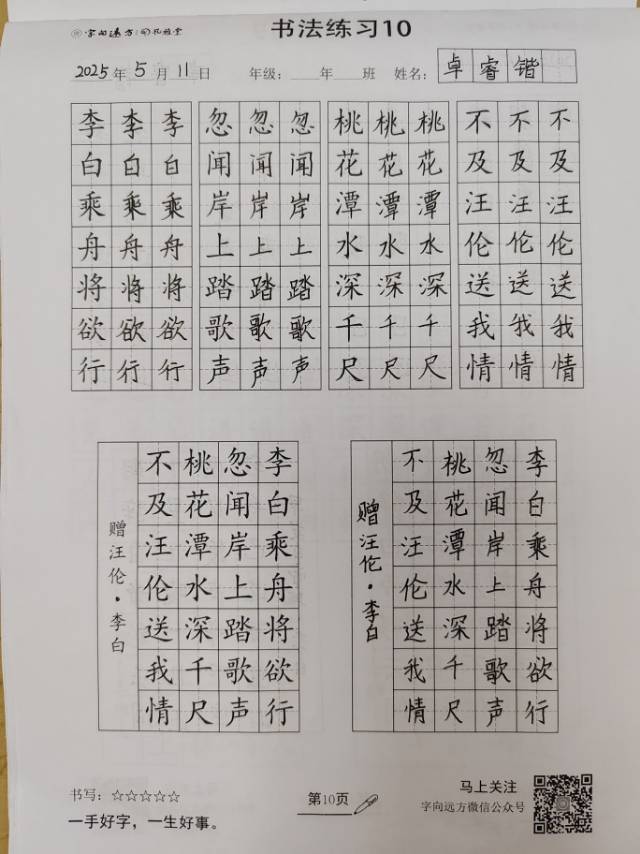 字向远方
书法练习10
2025年5月11日 年级：年 班 姓名：卓睿锴
李李李 忽忽忽 桃桃桃 不不不
白白白 闻闻闻 花花花 及及及
乘乘乘 岸岸岸 潭潭潭 汪汪汪
舟舟舟 上上上 水水水 伦伦伦
将将将 踏踏踏 深深深 送送送
欲欲欲 歌歌歌 千千千 我我我
行行行 声声声 尺尺尺 情情情
李白乘舟将欲行
忽闻岸上踏歌声
桃花潭水深千尺
不及汪伦送我情
赠汪伦·李白
李白乘舟将欲行
忽闻岸上踏歌声
桃花潭水深千尺
不及汪伦送我情
赠汪伦·李白
书写：☆☆☆☆☆
一手好字，一生好事。
第10页
马上关注
字向远方微信公众号